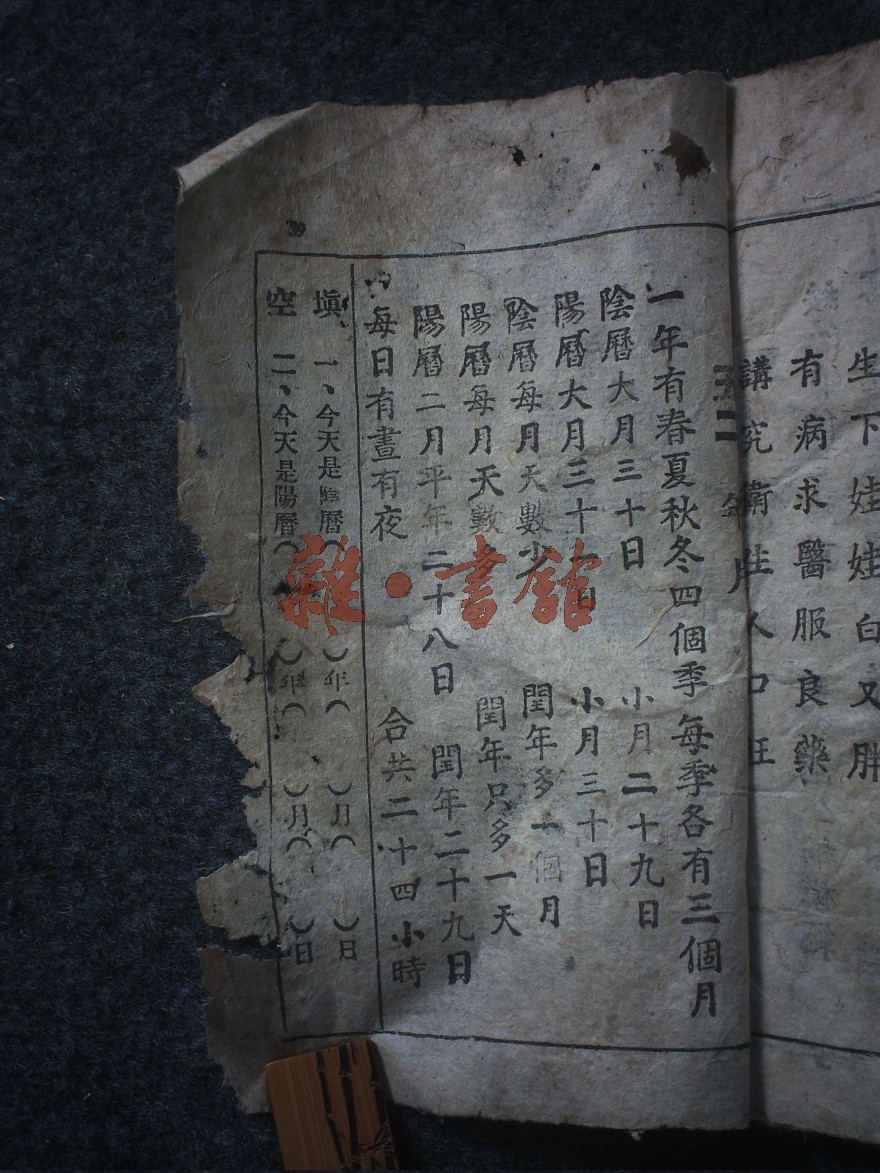 生下娃娃白又胖
有病求醫服良藥
講究衛生人口旺
年月
一年有春夏秋冬四個季 每季各有三個月
陰曆大月三十日 小月二十九日
陽曆大月三十一日 小月三十日
陰曆每月天數少 閏年多一個月
陽曆每月天數多 閏年只多一天
陽曆二月平年二十八日 閏年二十九日
每日有晝有夜 合共二十四小時
填空
一、今天是陰曆( )年( )月( )日
二、今天是陽曆( )年( )月( )日
雜·書館